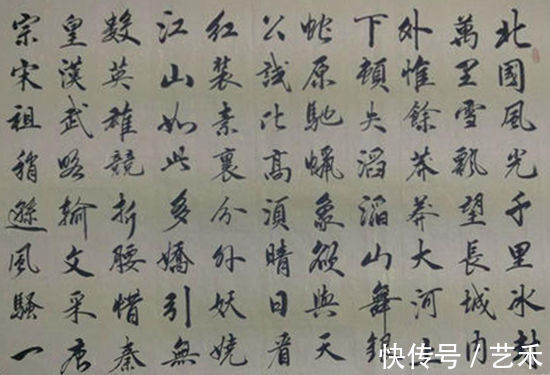 北國風光千里冰封
萬里雪飄望長城內
外惟餘莽莽大河上
下頓失滔滔山舞銀
蛇原馳蠟象欲與天
公試比高須晴日看
紅裝素裹分外妖嬈
江山如此多嬌引無
數英雄競折腰惜秦
皇漢武略輸文采唐
宗宋祖稍遜風騷一
快传号 / 艺禾